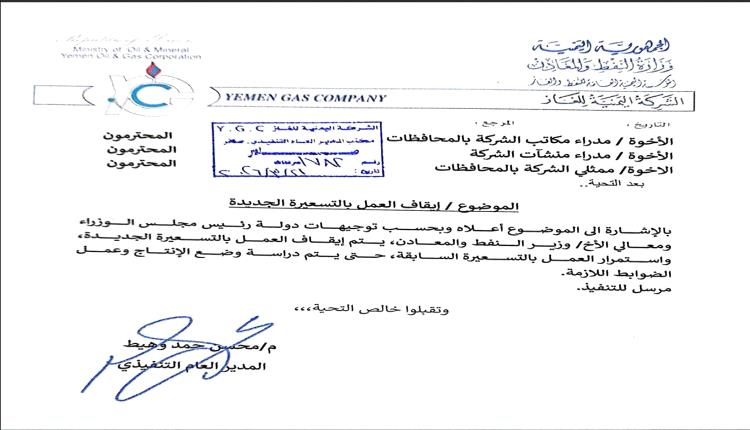 الجمهورية اليمنية
وزارة النفط والمعادن
المؤسسة اليمنية العامة للنفط والغاز
الشركة اليمنية للغاز
Ministry of Oil & Mineral
Yemen Oil & Gas Corporation
YEMEN GAS COMPANY
التاريخ :
المرجع :
الشركة اليمنية للغاز Y. G. C
مكتب المدير العام التنفيذي
رقم
تاريخ :
الأخوة / مدراء مكاتب الشركة بالمحافظات المحترمون
الأخوة / مدراء منشآت الشركة المحترمون
الاخوة/ ممثلي الشركة بالمحافظات المحترمون
بعد التحية..
الموضوع / إيقاف العمل بالتسعيرة الجديدة
بالإشارة الى الموضوع أعلاه وبحسب توجيهات دولة رئيس مجلس الوزراء
ومعالي الأخ/ وزير النفط والمعادن، يتم إيقاف العمل بالتسعيرة الجديدة،
واستمرار العمل بالتسعيرة السابقة، حتى يتم دراسة وضع الإنتاج وعمل
الضوابط اللازمة.
مرسل للتنفيذ.
وتقبلوا خالص التحية،،،
م/محسن حمد وهيط
المدير العام التنفيذي